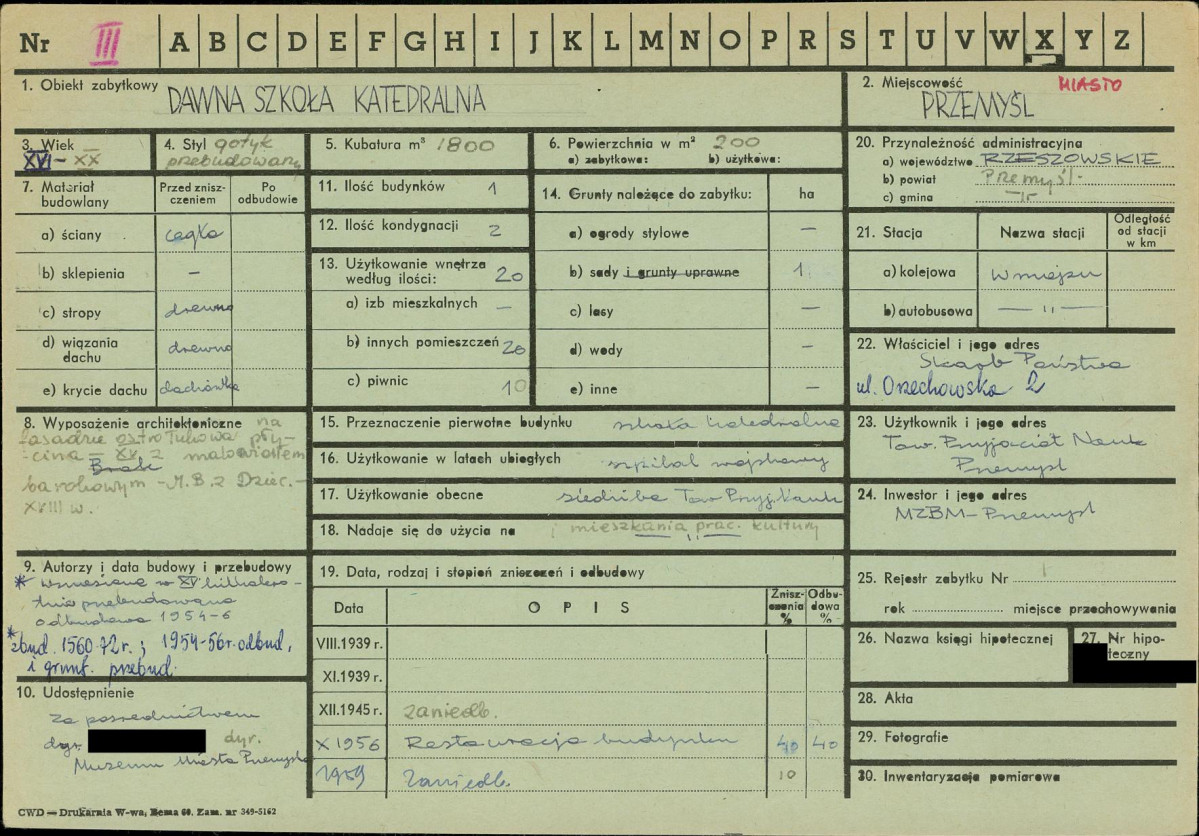 Nr III A B C D E F G H I J K L M N O P R S T U V W X Y Z
1. Obiekt zabytkowy DAWNA SZKOŁA KATEDRALNA
2. Miejscowość MIASTO
PRZEMYŚL
3. Wiek
XVI - XX
4. Styl gotyk
przebudowany
5. Kubatura m³ 1800
6. Powierzchnia w m² 200
a) zabytkowa: b) użytkowa:
20. Przynależność administracyjna
a) województwo RZESZOWSKIE
b) powiat Przemyśl-
c) gmina
7. Materiał budowlany
Przed zniszczeniem
Po odbudowie
a) ściany cegła
b) sklepienia —
c) stropy drewno
d) wiązania dachu drewno
e) krycie dachu dachówka
11. Ilość budynków 1
12. Ilość kondygnacji 2
13. Użytkowanie wnętrza
według ilości: 20
a) izb mieszkalnych —
b) innych pomieszczeń 20
c) piwnic 10
14. Grunty należące do zabytku: ha
a) ogrody stylowe —
b) sady i grunty uprawne 1
c) lasy —
d) wody —
e) inne —
21. Stacja Nazwa stacji Odległość od stacji w km
a) kolejowa w miejscu
b) autobusowa — " —
22. Właściciel i jego adres
Skarb Państwa
ul. Orzechowska 2
8. Wyposażenie architektoniczne na
fasadzie ostrołukowa pły-
-cina - XV z malowidłem
Brak
barokowym - M.B. z Dziec. -
XVIII w.
15. Przeznaczenie pierwotne budynku szkoła katedralna
16. Użytkowanie w latach ubiegłych szpital wojskowy
17. Użytkowanie obecne siedziba Tow. Przyj. Nauk
18. Nadaje się do użycia na mieszkania, prac. kultury
23. Użytkownik i jego adres
Tow. Przyjaciół Nauk
Przemyśl
24. Inwestor i jego adres
MZBM - Przemyśl
9. Autorzy i data budowy i przebudowy
* wzniesiona w XV kilkakro-
tnie przebudowana
odbudowa 1954-6
* zbud. 1560-72 r.; 1954-56 r. odbud.
i grunt. przebud.
19. Data, rodzaj i stopień zniszczeń i odbudowy
Data OPIS Zniszczenia % Odbudowa %
VIII.1939 r.
XI.1939 r.
XII.1945 r. zaniedb.
X 1956 Restauracja budynku 40 40
1959 Zaniedb. 10
25. Rejestr zabytku Nr
rok miejsce przechowywania
26. Nazwa księgi hipotecznej
27. Nr hipoteczny
28. Akta
29. Fotografie
30. Inwentaryzacja pomiarowa
10. Udostępnienie
za pośrednictwem
dyr.
Muzeum Miasta Przemyśla
CWD — Drukarnia W-wa, Bema 60. Zam. nr 349-5162